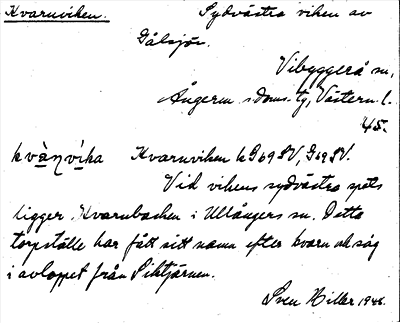 Kvarnviken. Sydvästra viken av
Gålsjön.
Vibyggerå sn,
Ångerm. s. doms. tg, Västern. l.
45.
kvà̱ɳví̱ka Kvarnviken k G69 SV, G69 SV.
Vid vikens sydvästra spets
ligger Kvarnbacken i Ullångers sn. Detta
torpställe har fått sitt namn efter kvarn och såg
i avloppet från Siktjärnen.
Sven Hiller 1946.